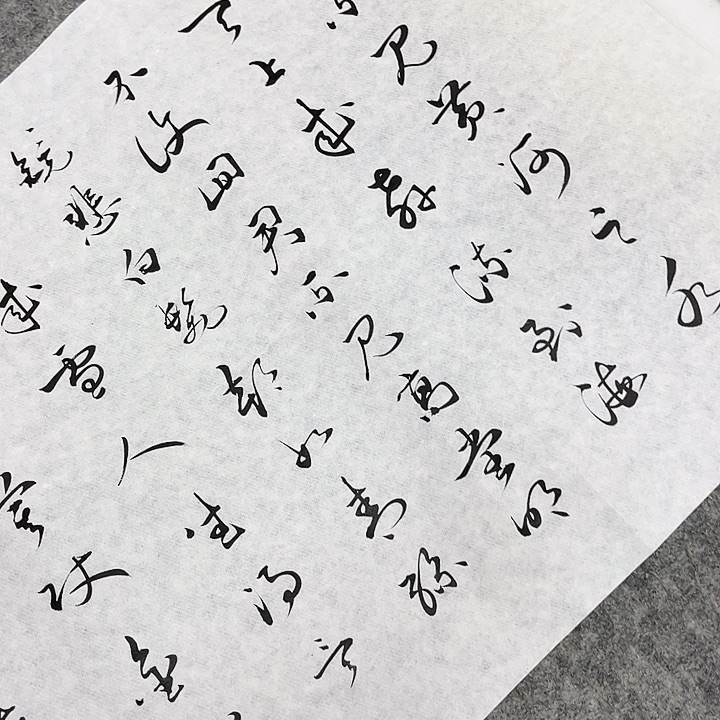 不見黃河之水
天上來奔流到海
不復回君不見高堂明
鏡悲白髮朝如青絲
成雪人生得意
莫使金